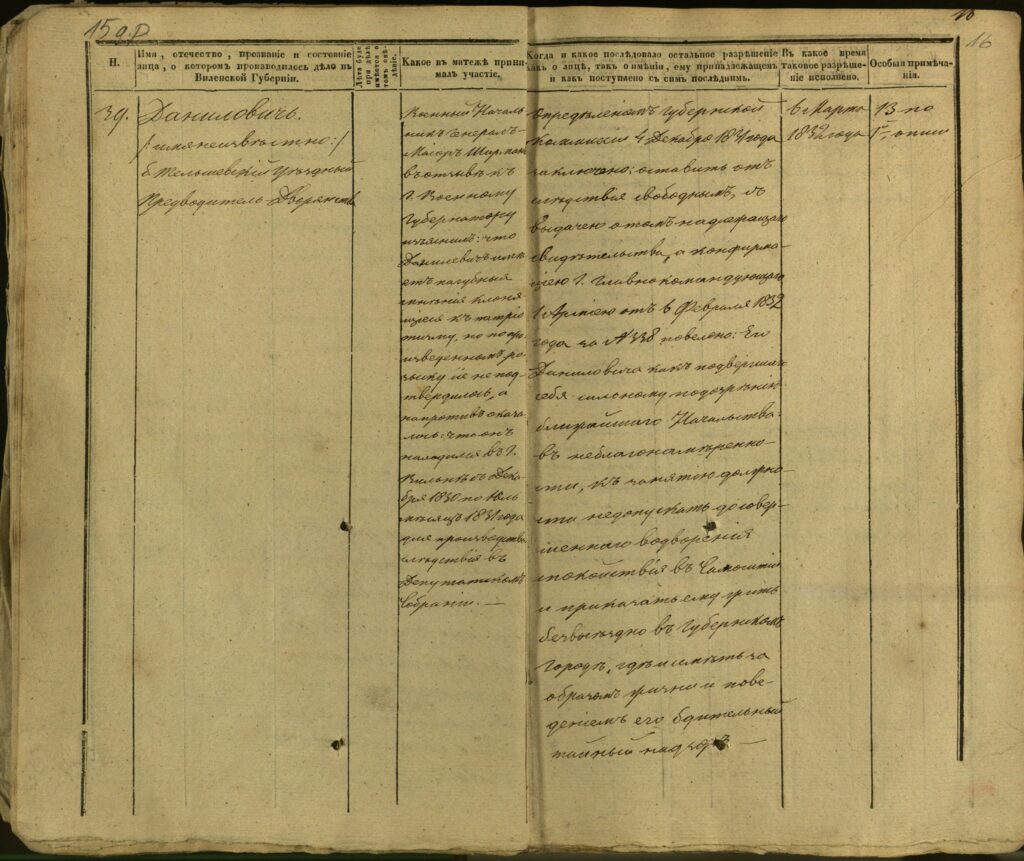 15 об.
16
16
Н.
Имя, отечество, прозваніе и состояніе
лица, о которомъ производилось дѣло въ
Виленской Губерніи.
Какое въ мятежѣ прини-
малъ участіе.
Когда и какое послѣдовало остальное разрѣшеніе
какъ о лицѣ, такъ о имѣніи, ему принадлежащемъ
и какъ поступлено съ симъ послѣднимъ.
Въ какое время
таковое разрѣше-
ніе исполнено.
Особыя примѣча-
нія.
39.
Даниловичь.
/:имя неизвѣстно:/
б. Тельшевскій Уѣздный
Предводитель Дворянства
Военный Началь
никъ Генералъ-
Маіоръ Ширманъ
въ отзывѣ къ
Г. Военному
Губернатору
изъяснилъ: что
Данилевичъ имѣ
етъ пагубныя
мнѣнія клоня
щіеся къ патріо
тизму, но по про
изведенному ро
зыску сіе не под
твердилось, а
напротивъ оказа
лось: что онъ
находился въ Г.
Вильнѣ съ Дека
бря 1830 по Іюль
мѣсяцъ 1831 года
для производства
слѣдствія въ
Депутатскомъ
Собраніи. —
Опредѣленіемъ Губернской
Коммисіи 4 Декабря 1831 года
заключено: оставить отъ
слѣдствія свободнымъ, съ
выдачею о томъ надлежащаго
свидѣтельства, а конфирма-
ціею Г. Главнокомандующаго
1 Арміею отъ 6 Февраля 1832
года за N 338 повелено: Его
Даниловича какъ подвергшаго
себя сильному подозрѣнію
ближайшаго Начальства
въ неблагонамѣренно-
сти, къ занятію должно-
сти недопускать до совер-
шеннаго водворенія
спокойствія въ Самогитіи
и приказать ему жить
безвыѣздно въ Губернскомъ
городѣ, гдѣ и имѣть за
образомъ жизни и пове-
деніемъ его бдительный
тайный надзоръ —
6 Марта
1832 года
13 по
1й описи